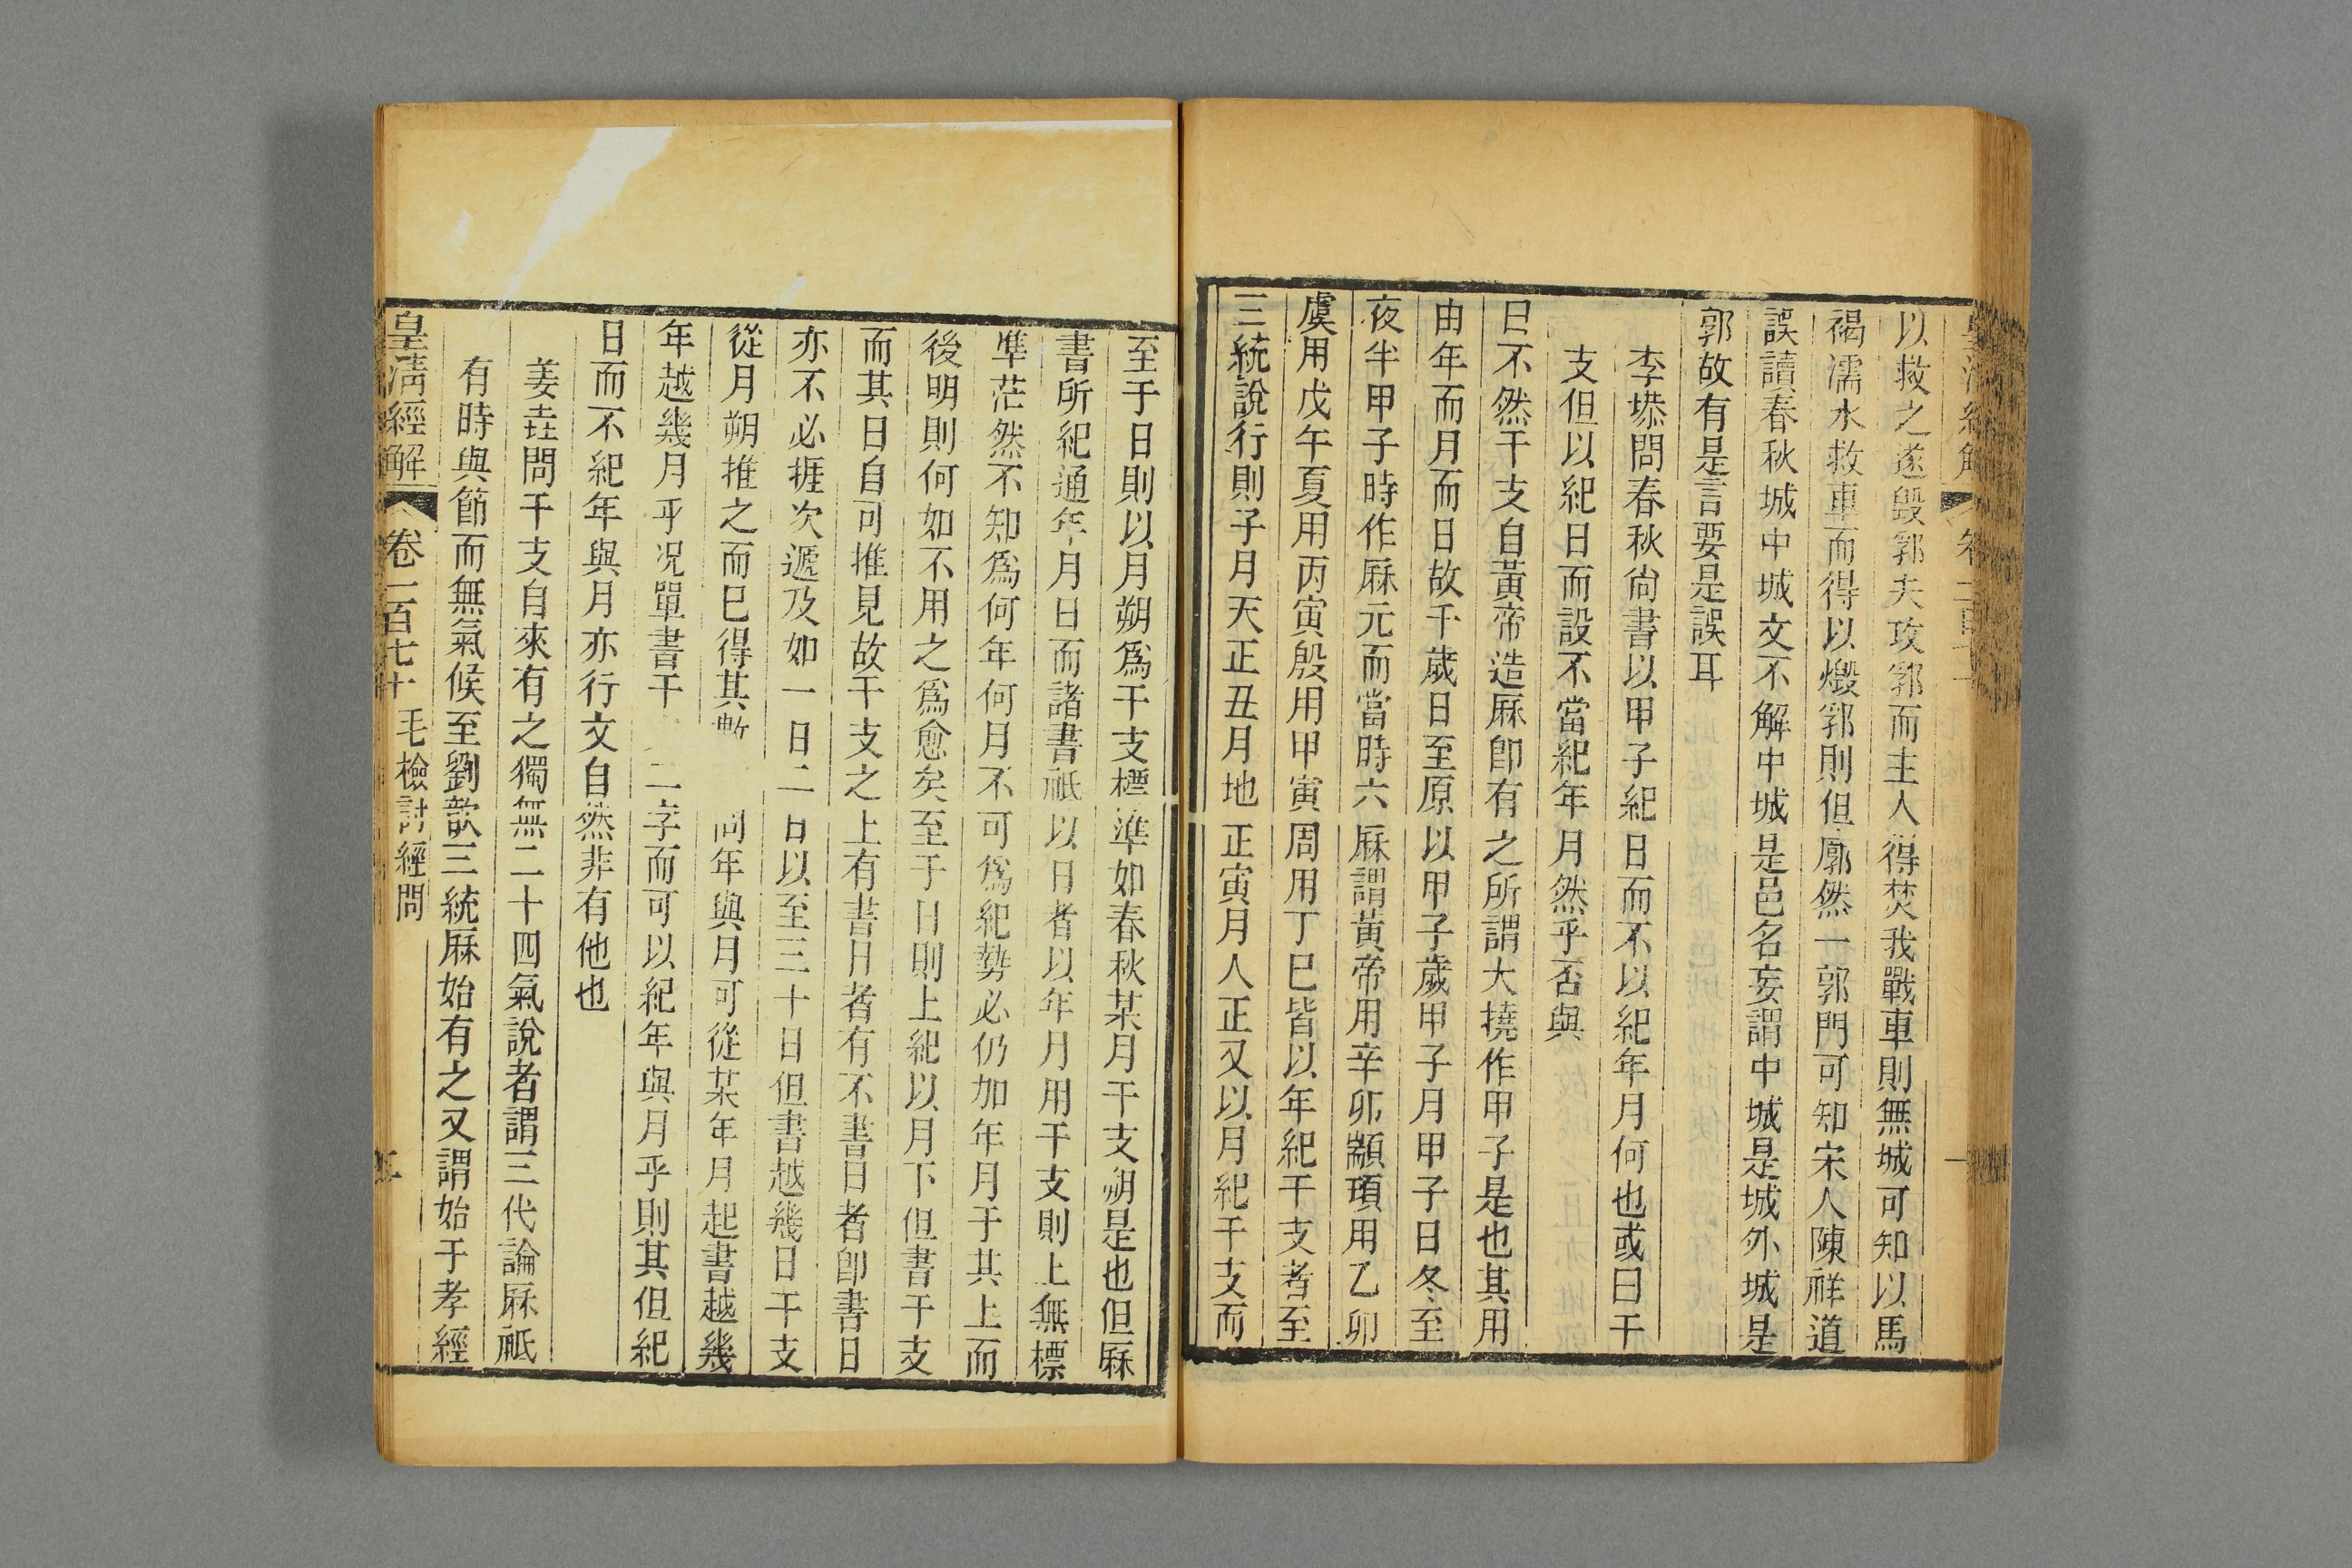 以救之遂毀郭夫攻郭而主人得焚我戰車則無城可知以馬
褐濡水救車而得以燬郭則但廓然一郭門可知宋人陳祥道
誤讀春秋城中城文不解中城是邑名妄謂中城是城外城是
郭故有是言要是誤耳
李塨問春秋尙書以甲子紀日而不以紀年月何也或曰干
支但以紀日而設不當紀年月然乎否與
曰不然干支自黃帝造厤卽有之所謂大撓作甲子是也其用
由年而月而日故千歲日至原以甲子歲甲子月甲子日冬至
夜半甲子時作厤元而當時六厤謂黃帝用辛卯顓頊用乙卯
虞用戊午夏用丙寅殷用甲寅周用丁巳皆以年紀干支者至
三統說行則子月天正丑月地正寅月人正又以月紀干支而
至于日則以月朔爲干支標準如春秋某月干支朔是也但厤
書所紀通年月日而諸書祗以日者以年月用干支則上無標
準茫然不知爲何年何月不可爲紀勢必仍加年月于其上而
後明則何如不用之爲愈矣至于日則上紀以月下但書干支
而其日自可推見故干支之上有書日者有不書日者卽書日
亦不必捱次遞及如一日二日以至三十日但書越幾日干支
從月朔推之而已得其數 問年與月可從某年月起書越幾
年越幾月乎况單書干 二字而可以紀年與月乎則其但紀
日而不紀年與月亦行文自然非有他也
姜垚問干支自來有之獨無二十四氣說者謂三代論厤祗
有時與節而無氣候至劉歆三統厤始有之又謂始于孝經
皇淸經解 卷一百七十 毛檢討經問